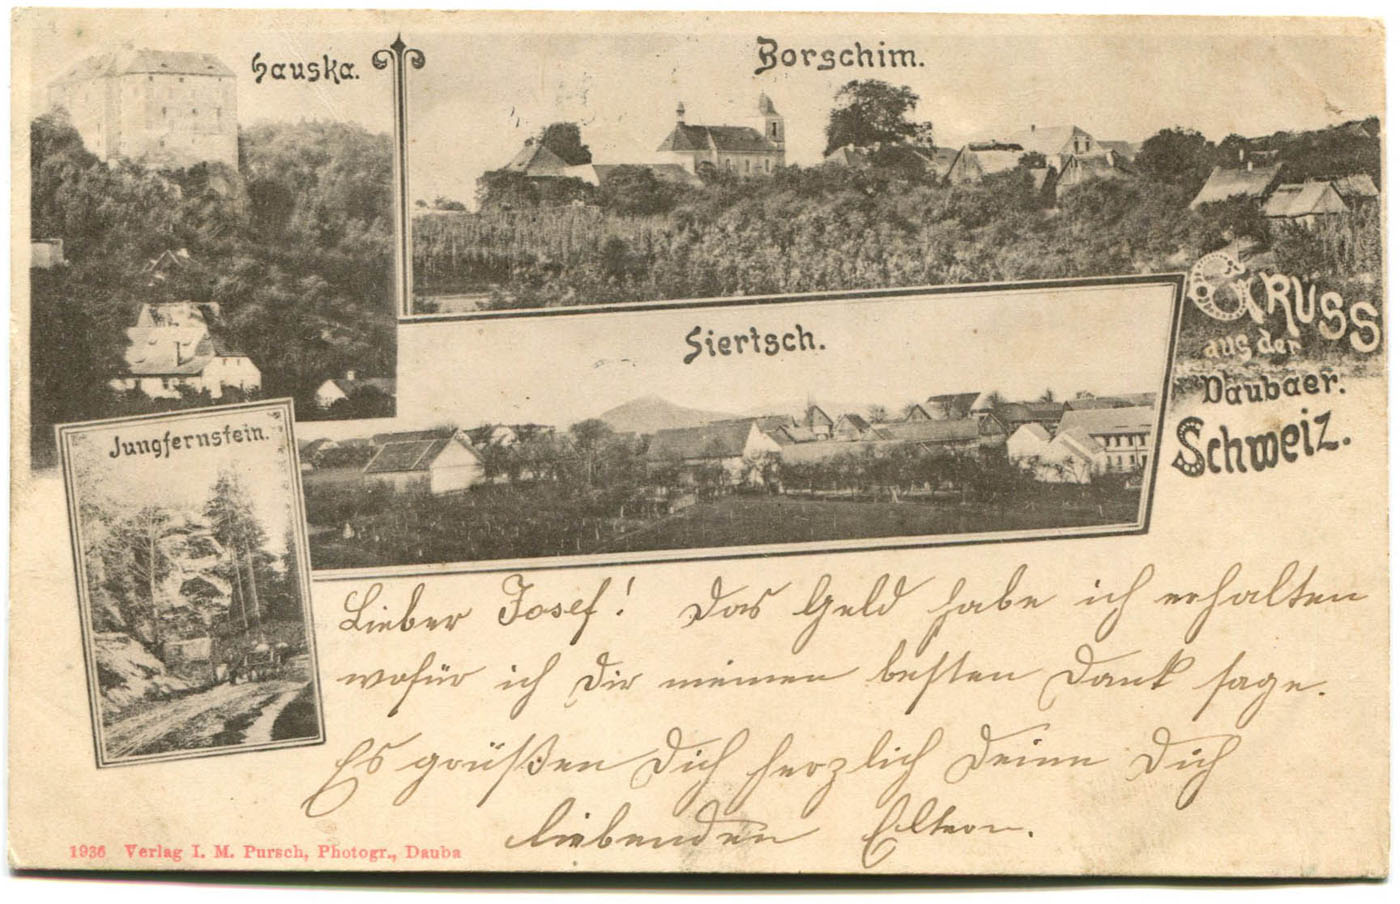 Hauska.
Borschim.
Siertsch.
Gruss
aus der
Daubaer.
Schweiz.
Jungfernstein.
Lieber Josef! Das Geld habe ich erhalten
wofür ich Dir meinen besten Dank sage.
Es grüßen Dich herzlich Deine Dich
liebenden Eltern.
1936 Verlag I. M. Pursch, Photogr., Dauba